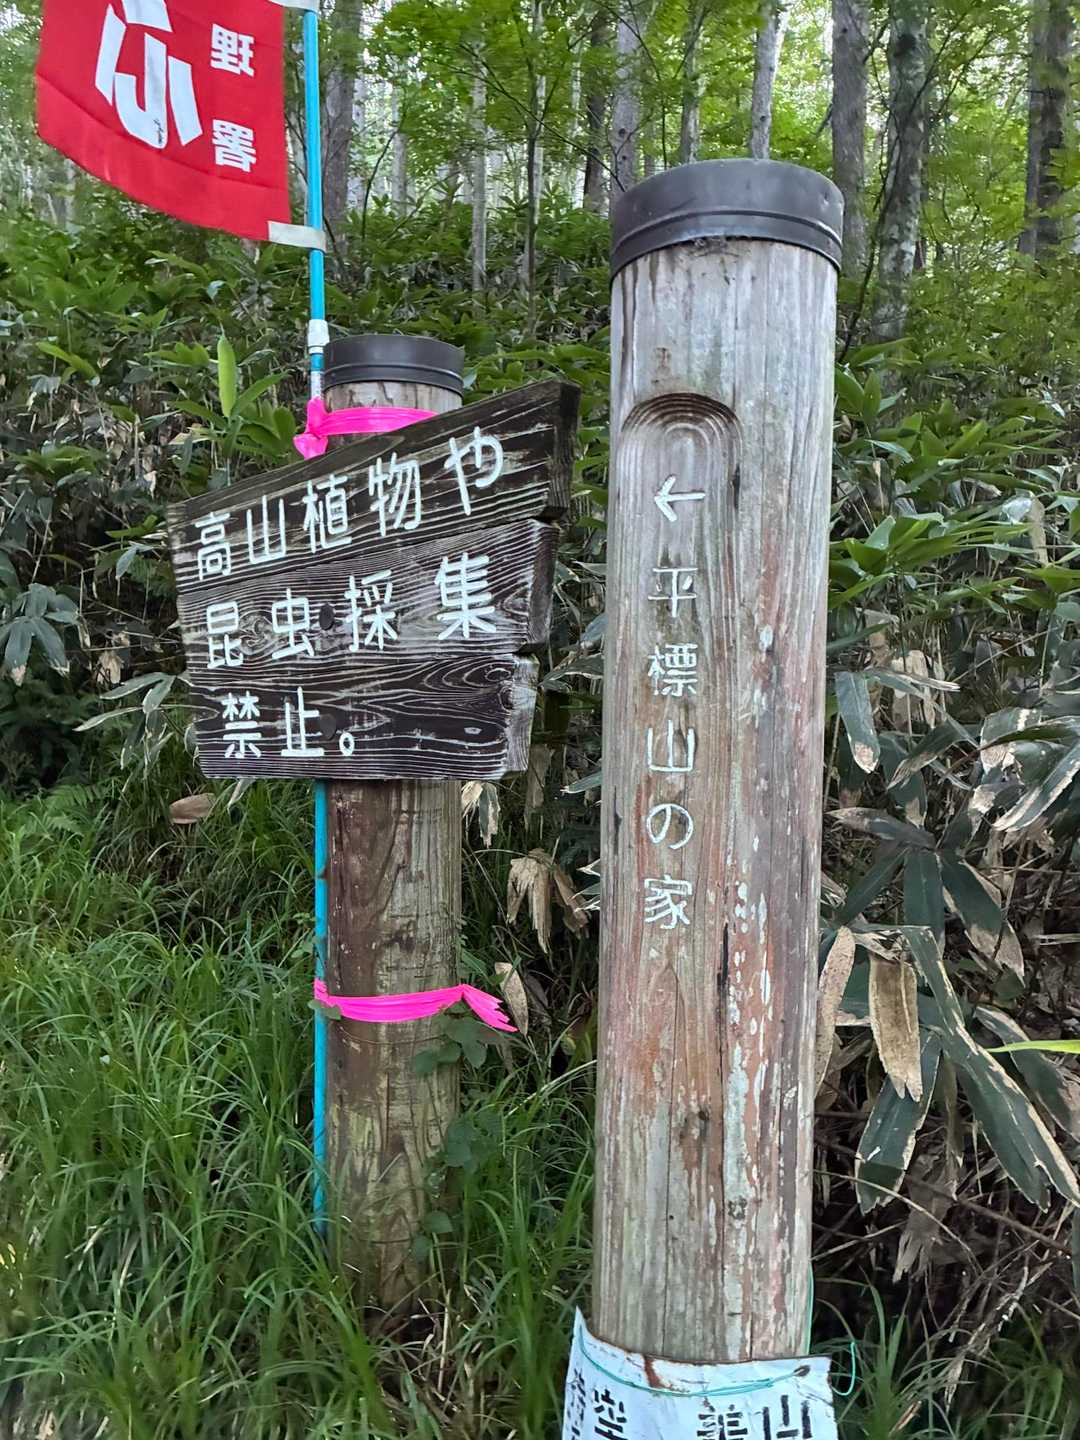 ふ
野
署
高山植物や
昆虫採集
禁止。
←平標山の家